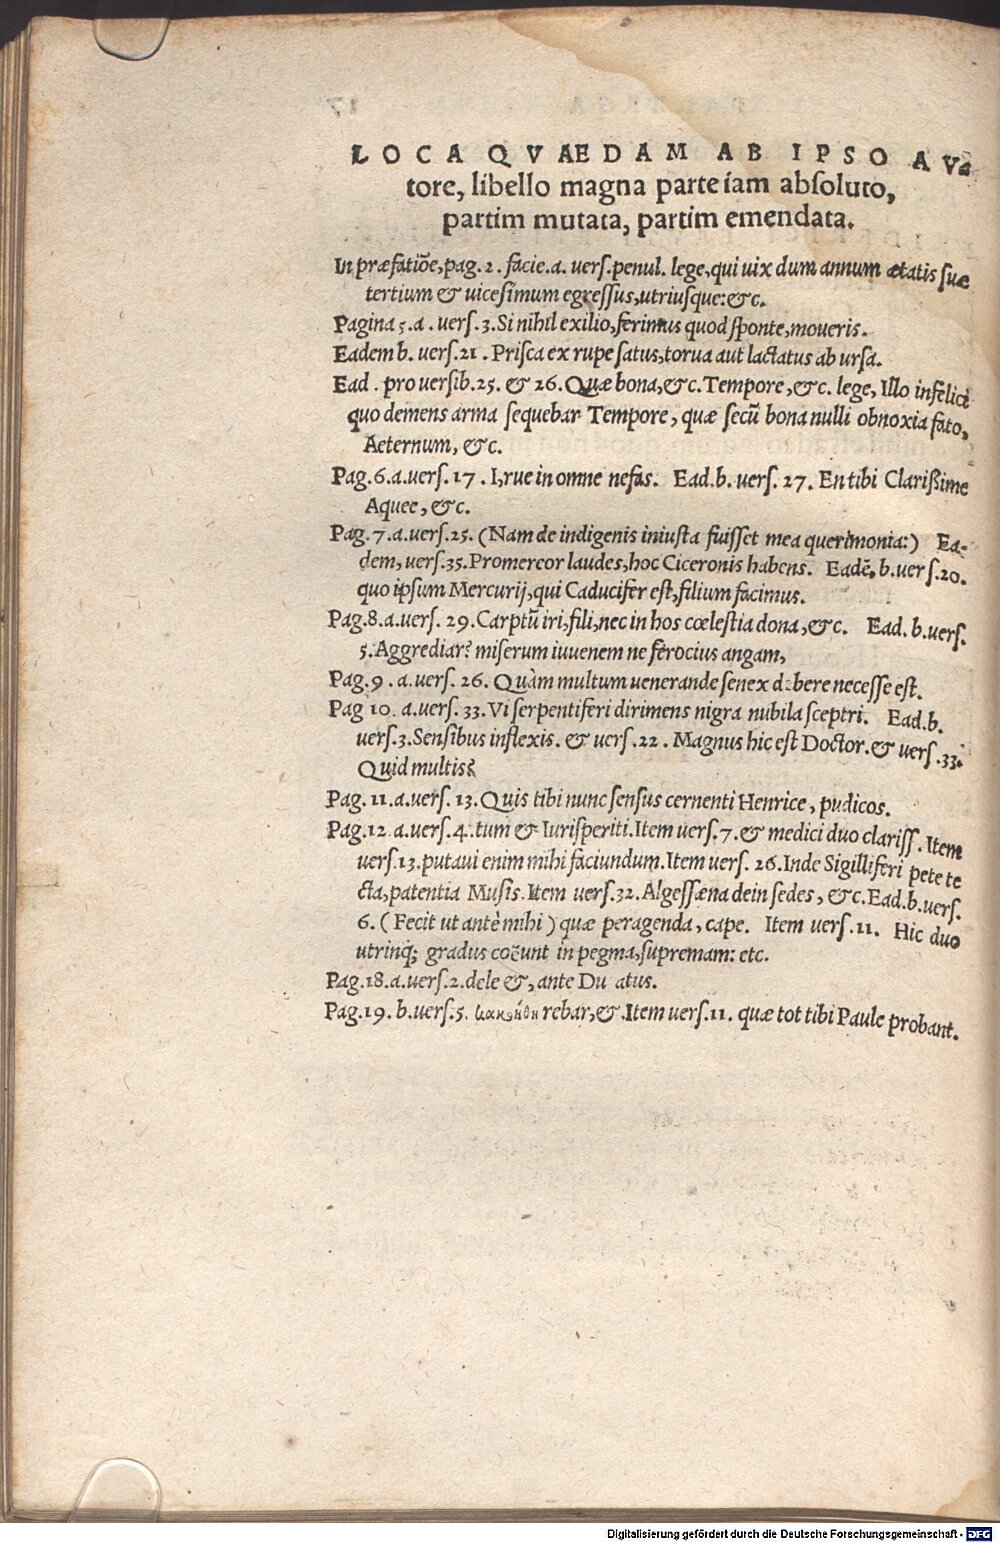 LOCA QVAEDAM AB IPSO AV-
tore, libello magna parte iam absoluto,
partim mutata, partim emendata.
In præfatiōe, pag. 2. facie.a. vers. penul. lege, qui uix dum annum ætatis suæ
tertium & uicesimum egressus, utriusque: &c.
Pagina 5.a. vers. 3. Si nihil exilio, ferimus quod sponte, moueris.
Eadem b. vers. 21. Prisca ex rupe satus, torua aut lactatus ab ursa.
Ead. pro versib. 25. & 26. Quæ bona, &c. Tempore, &c. lege, Illo infelici
quo demens arma sequebar Tempore, quæ secū bona nulli obnoxia fato,
Aeternum, &c.
Pag. 6. a. vers. 17. I, rue in omne nefas. Ead. b. vers. 27. En tibi Clarißime
Aquee, &c.
Pag. 7. a. vers. 25. (Nam de indigenis iniusta fuisset mea querimonia:) Ea-
dem, vers. 35. Promereor laudes, hoc Ciceronis habens. Eadē. b. vers. 20.
quo ipsum Mercurij, qui Caducifer est, filium facimus.
Pag. 8. a. vers. 29. Carptū iri, fili, nec in hos cœlestia dona, &c. Ead. b. vers.
5. Aggrediar? miserum iuuenem ne ferocius angam,
Pag. 9. a. vers. 26. Quàm multum uenerande senex debere necesse est.
Pag 10. a. vers. 33. Vi serpentiferi dirimens nigra nubila sceptri. Ead. b.
vers. 3. Sensibus inflexis. & vers. 22. Magnus hic est Doctor. & vers. 33.
Quid multis?
Pag. 11. a. vers. 13. Quis tibi nunc sensus cernenti Henrice, pudicos.
Pag. 12 a. vers. 4. tum & Iurisperiti. Item vers. 7. & medici duo clariss. Item
vers. 13. putaui enim mihi faciundum. Item vers. 26. Inde Sigilliferi pete te
cta, patentia Musis. Item vers. 32. Algessæna dein sedes, &c. Ead. b. vers.
6. (Fecit ut antè mihi) quæ peragenda, cape. Item vers. 11. Hic duo
utrinq; gradus coëunt in pegma, supremam: etc.
Pag. 18. a. vers. 2. dele &, ante Du atus.
Pag. 19. b. vers. 5. rebar, &. Item vers. 11. quæ tot tibi Paule probant.
Digitalisierung gefördert durch die Deutsche Forschungsgemeinschaft - DFG